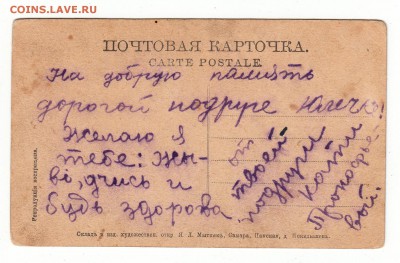 COINS.LAVE.RU
ПОЧТОВАЯ КАРТОЧКА.
CARTE POSTALE.
На добрую память
дорогой подруге
Желаю я
тебе: Жы-
ви, учись и
будь здорова.
от
твоей
подруги
Кати
Прокофье-
вой.
Репродукция воспрещена.
Складъ и изд. художествен. откр. Я. Д. Самара, Панская, д.